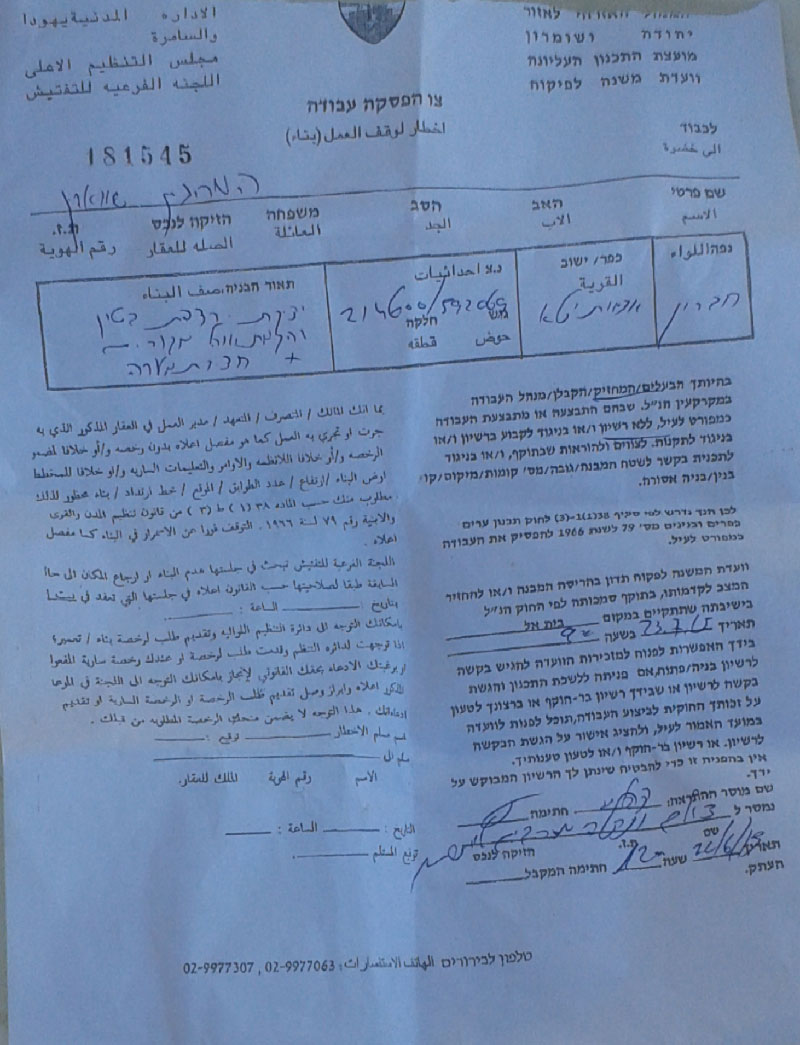 الاداره المدنية يهودا
والسامرة
مجلس التنظيم الاعلى
اللجنه الفرعيه للتفتيش
לאזור
יהודה ושומרון
מועצת התכנון העליונה
וועדת משנה לפיקוח
צו הפסקת עבודה
اخطار لوقف العمل (بناء)
לכבוד
الى حضرة
181545
שם פרטי האב הסב משפחה הזיקה לנכס ת.ז.
الاسم الاب الجد العائلة الصله للعقار رقم الهوية
נפה/اللواء
חברון
כפר/ישוב
القرية
נ.צ احداثيات
214600/592065
גוש חלקה
حوض قطعه
תאור הבניה/صف البناء
יציקת רצפת בטון
+ חצר מערה
בהיותך הבעלים/המחזיק/הקבלן/מנהל העבודה
במקרקעין הנ"ל. שבהם התבצעה או מתבצעת העבודה
כמפורט לעיל, ללא רשיון ו/או בניגוד לקבוע ברשיון ו/או
בניגוד לתקנות. לצווים ולהוראות שבתוקף, ו/או בניגוד
לתכנית בקשר לשטח המבנה/גובה/מס' קומות/מיקום/קו
בנין/בניה אסורה.
לכן הנך נדרש לפי סעיף 38(1)-(3) לחוק תכנון ערים
כפרים ובנינים מס' 79 לשנת 1966 להפסיק את העבודה
כמפורט לעיל.
וועדת המשנה לפקוח תדון בהריסת המבנה ו/או להחזיר
המצב לקדמותו, בתוקף סמכותה לפי החוק הנ"ל
בישיבתה שתתקיים במקום בית אל
תאריך 23.7.15 בשעה
בידך האפשרות לפנות למזכירות הוועדה להגיש בקשה
לרשיון בניה/פתוח, אם פניתה ללשכת התכנון והגשת
בקשה לרשיון או שבידך רשיון בר-תוקף או ברצונך לטעון
על זכותך החוקית לביצוע העבודה, תוכל לפנות לוועדה
במועד האמור לעיל, ולהציג אישור על הגשת הבקשה
לרשיון. או רשיון בר-תוקף ו/או לטעון טענותיך.
אין בהפניה זו כדי להבטיח שינתן לך הרשיון המבוקש על
ידך.
שם מוסר ההתראה: חתימה
נמסר ל
שם ת.ז. הזיקה לנכס
תאריך שעה חתימת המקבל
העתק.
بما انك المالك / المتصرف / المتعهد / مدير العمل في العقار المذكور الذي به
جرت او تجري به العمل كما هو مفصل اعلاه بدون رخصه و/أو خلافا لمضمون
الرخصه و/أو خلافا للانظمه والاوامر والتعليمات الساريه و/او خلافا للمخطط
ارض البناء / ارتفاع / عدد الطوابق / الموقع / خط ارتداد / بناء محظور لذلك
مطلوب منك حسب الماده ٣٨ (١) ط (٣) من قانون تنظيم المدن والقرى
والابنية رقم ٧٩ لسنة ١٩٦٦. التوقف فورا عن الاستمرار في البناء كما مفصل
اعلاه.
اللجنة الفرعية للتفتيش تبحث في جلستها هدم البناء او ارجاع المكان الى حالته
السابقة طبقا لصلاحيتها حسب القانون اعلاه في جلستها التي تعقد في
بتاريخ: الساعة:
بامكانك التوجه الى دائرة التنظيم اللوائيه وتقديم طلب لرخصة بناء / تعمير
اذا توجهت لدائره التنظيم وقدمت طلب لرخصة او عندك رخصة سارية المفعول
او برغبتك الادعاء بحقك القانوني لإنجاز بامكانك التوجه الى اللجنة في الموعد
المذكور اعلاه وابراز وصل تقديم طلب الرخصة او الرخصة السارية او تقديم
ادعاءاتك. هذا التوجه لا يضمن منحك الرخصة المطلوبه من قبلك.
اسم مسلم الاخطار توقيع:
سلم الى
الاسم رقم الهوية المالك للعقار.
التاريخ: الساعة:
توقيع المستلم
טלפון לבירורים الهاتف الاستفسارات: 02-9977063, 02-9977307